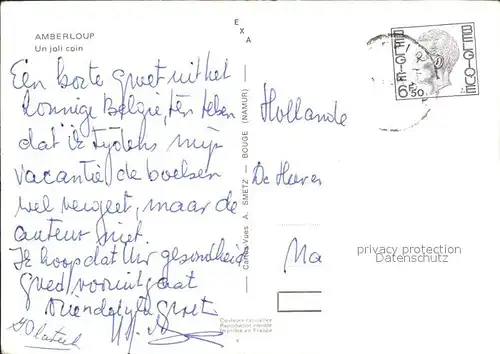 AMBERLOUP
Un joli coin
EXA
Een korte groet uit het
zonnige België, ten teken
dat ik tijdens mijn
vacantie de boeken
wel vergeet, maar de
auteur niet.
Ik hoop dat Uw gesondheid
goed vooruit gaat
Vriendelijke groet
Cartes Vues A. SMETZ — BOUGE (NAMUR)
Couleurs naturelles
Reproduction interdite
Imprimé en France
BELGIE
BELGIQUE
6F50
Hollande
De Heer
Na
privacy protection
Datenschutz